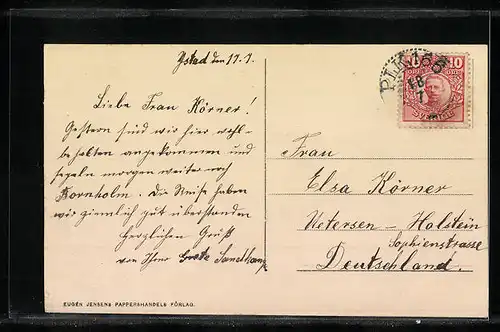 Ystad den 17.7.
Liebe Frau Körner!
Gestern sind wir hier wohl-
behalten angekommen und
segeln morgen weiter nach
Bornholm. Die Reise haben
wir ziemlich gut überstanden
Herzlichen Gruß
von Ihrer Grete
EUGÉN JENSENS PAPPERSHANDELS FÖRLAG.
PLK 166
18
7
10
Frau
Elsa Körner
Uetersen - Holstein
Sophienstrasse
Deutschland.